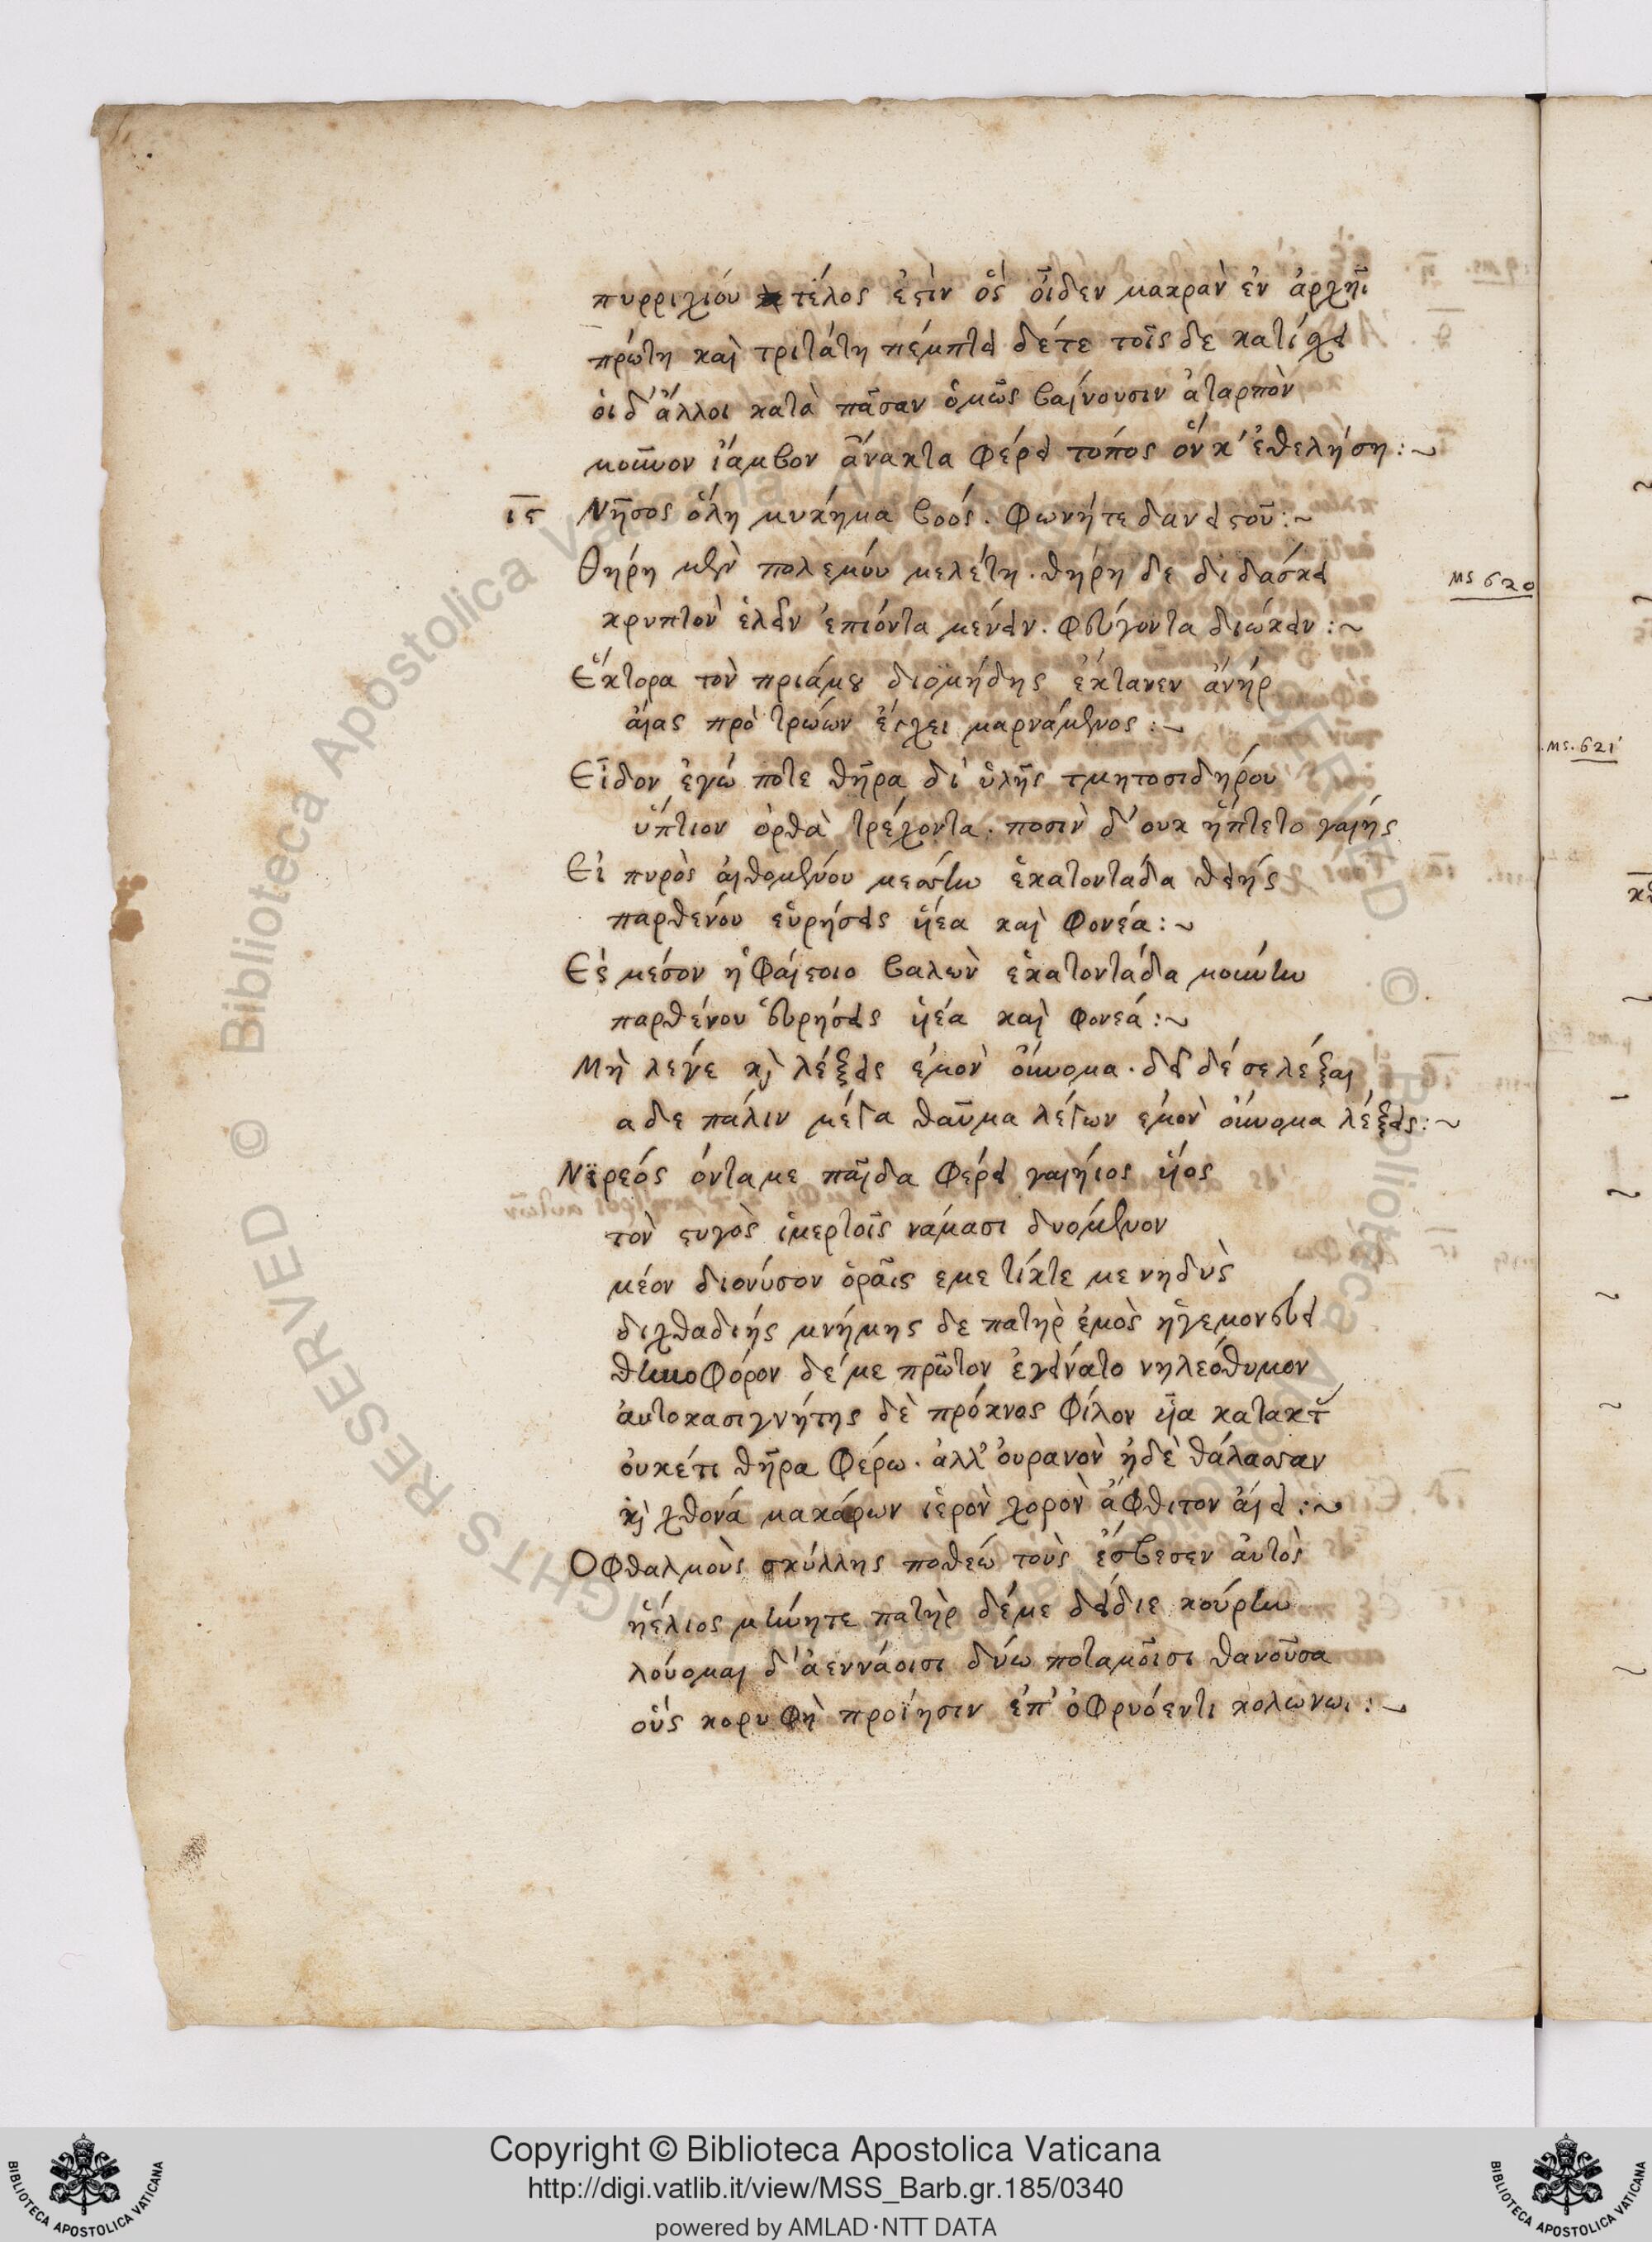 πυρριχίου τέλος ἐστὶν ὃς οἶδεν μακρὰν ἐν ἀρχῆι
πρώτη καὶ τριτάτη πέμπτα δέτε τοῖς δε κατίσχει
ὁι δ' ἄλλοι κατὰ πᾶσαν ὁμῶς βαίνουσιν ἀταρπὸν
μοῦνον ἰάμβον ἄνακτα φέρει τόπος ὅν κ' ἐθελήση :~
ιϛ Νῆσος ὅλη μυκήμα βοός. φωνήτε δανειστοῦ :~
θηρη μὲν πολέμου μελέτη. θήρη δε διδάσκει
MS 620
κρυπτὸν ἑλεῖν ἐπιόντα μένειν. φεύγοντα διώκειν :~
Ἕκτορα τὸν πριάμου διομήδης ἐκτανεν ἀνήρ
ἀίας πρὸ τρώων ἔγχει μαρνάμενος :~
MS. 621
Εἶδον ἐγώ ποτε θῆρα δι' ὑλῆς τμητοσιδήρου
ὕπτιον ὀρθὰ τρέχοντα. ποσὶν δ' ουκ ἥπτετο γαιής
Εἰ πυρὸς αἰθομένου μεσσην ἑκατοντάδα θείης
παρθενόυ εὑρήσεις ὑιέα καὶ φονέα :~
Ἐς μέσον ἡφαίστοιο βαλὼν ἑκατοντάδα μούνην
παρθένου εὑρήσεις ὑιέα καὶ φονεά :~
Μὴ λεγε καὶ λέξεις ἐμὸν ὄυνομα. δεῖ δέ σε λέξαι
αδε πάλιν μέγα θαῦμα λέγων ἐμὸν ὄυνομα λέξεις :~
Νϊρεός όντα με παῖδα φέρει γαιήιος ὑιος
τὸν στυγὸς ἱμερτοῖς νάμασι δυομενον
μέον διονύσον ὁρᾶις εμε τίκτε με νηδυς
διχθαδιής μνήμης δε πατὴρ ἐμὸς ἡγεμονεύει
θηνοφόρον δέ με πρῶτον ἐγείνατο νηλεόθυμον
ἀυτοκασιγνήτης δὲ πρόκνος φίλον ὑῖα κατακτ
ὀυκέτι θῆρα φέρω. ἀλλ' ὀυρανὸν ἠδὲ θάλασσαν
καὶ χθονά μακάρων ἱερὸν χορὸν ἄφθιτον ἀιεὶ :~
Οφθαλμοὺς σκύλλης ποθεώ τοὺς ἔσβεσεν ἀυτὸς
ἠέλιος μήνητε πατὴρ δέμε δείδιε κούρην
λούομαι δ' ἀεννάοισι δυω ποταμοῖσι θανοῦσα
οὓς κορυφὴ προίησιν ἐπ' ὀφρυόεντι κολωνωι :~
Copyright © Biblioteca Apostolica Vaticana
http://digi.vatlib.it/view/MSS_Barb.gr.185/0340
powered by AMLAD·NTT DATA
BIBLIOTECA APOSTOLICA VATICANA
BIBLIOTECA APOSTOLICA VATICANA